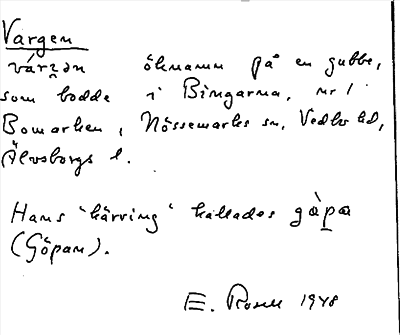 Vargen
várʒən öknamn på en gubbe,
som bodde i Bingarna, nr 1
Bomarken, Nössemarks sn, Vedbo hd,
Älvsborgs l.
Hans "kärring" kallades gàpa
(Göpan).
E. 1948